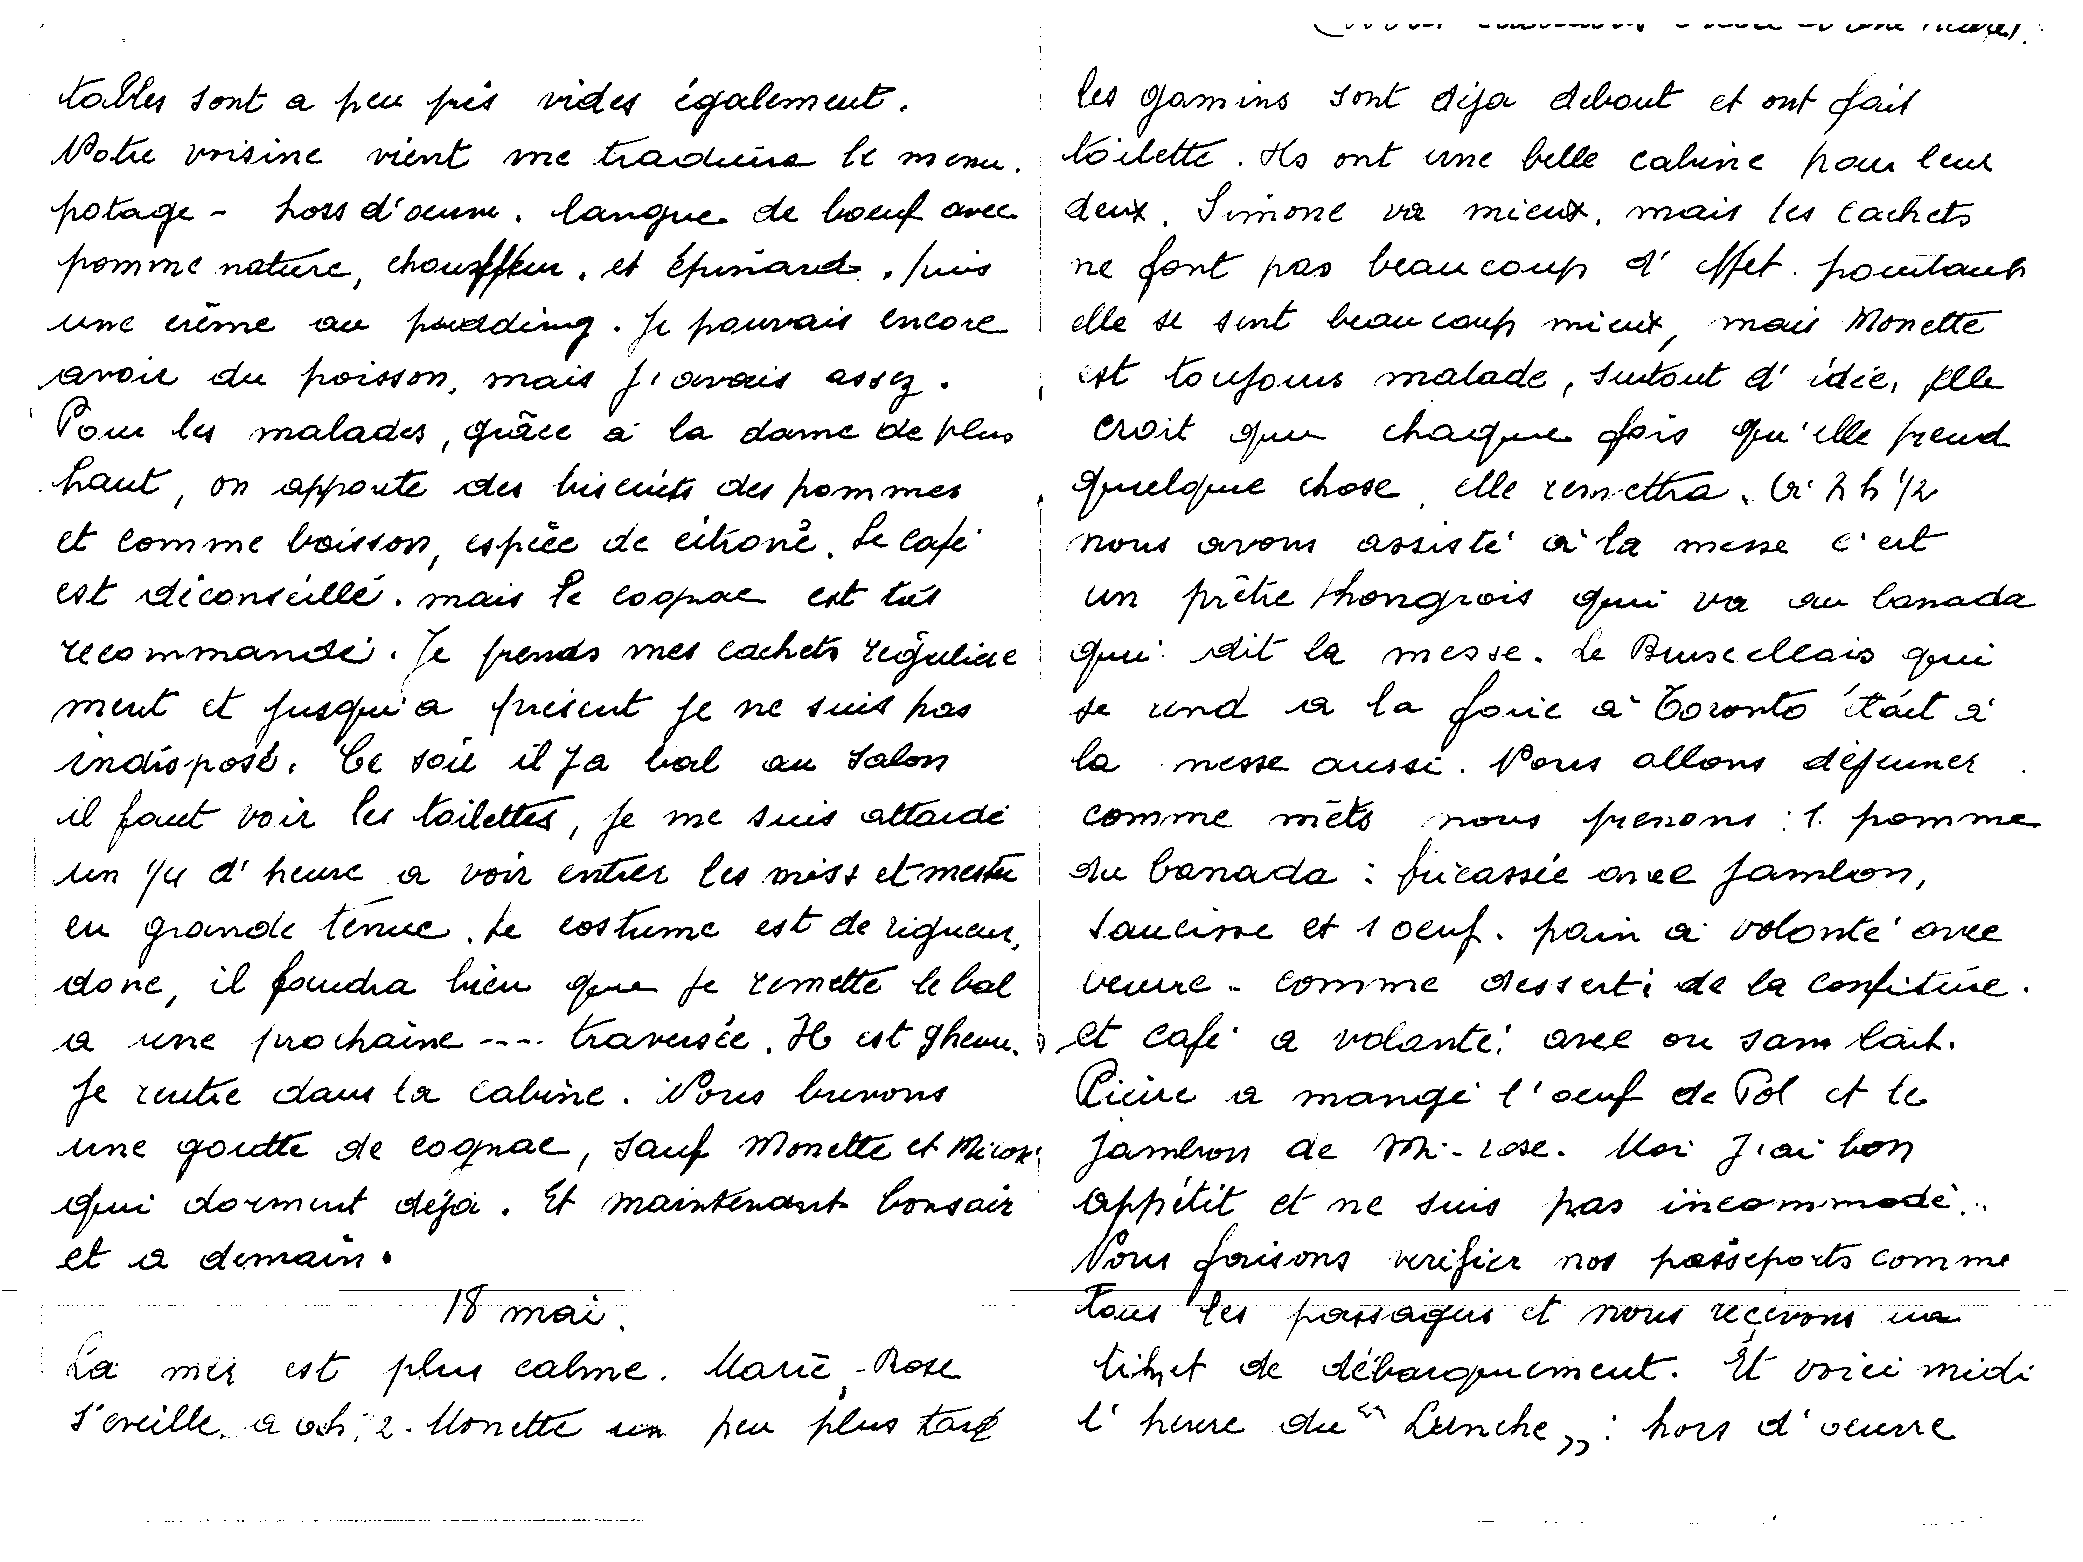 tables sont a peu près vides également.
Notre voisine vient me traduire le menu.
potage - hors d'oeuvre. langue de boeuf avec
pomme nature, chouffleur. et épinard. puis
une crème au pudding. Je pouvais encore
avoir du poisson, mais j'avais assez.
Pour les malades, grâce à la dame de plus
haut, on apporte des biscuits des pommes
et comme boisson, espèce de citroné. Le café
est déconseillé. mais le cognac est très
recommandé. Je prends mes cachets régulière
ment et jusqu'a présent je ne suis pas
indisposé. Ce soir il y a bal au salon
il faut voir les toilettes, je me suis attardé
un 1/4 d'heure a voir entrer les miss et mestre
en grande tenue. Le costume est de rigueur,
donc, il faudra bien que je remette le bal
a une prochaine ---- traversée. Il est 9 heure.
Je rentre dans la cabine. Nous buvons
une goutte de cognac, sauf Monette et
qui dorment déjà. Et maintenant bonsoir
et a demain.
18 mai.
La mer est plus calme. Marie-Rose
s'éveille a 2. Monette un peu plus tard
les gamins sont déja debout et ont fait
toilette. Ils ont une belle cabine pour leur
deux. Simone va mieux, mais les cachets
ne font pas beaucoup d'effet. pourtant
elle se sent beaucoup mieux, mais Monette
est toujours malade, surtout d'idée, elle
croit que chaque fois qu'elle prend
quelque chose, elle remettra. A h 1/2
nous avons assisté à la messe c'est
un prêtre hongrois qui va au Canada
qui dit la messe. Le Bruxellois qui
se rend a la foire à Toronto était à
la messe aussi. Nous allons déjeuner
comme mêts nous prenons : 1. pomme
du Canada : fricassée avec jambon,
saucisse et 1 oeuf. pain à volonté avec
beurre - comme dessert : de la confiture.
et café a volonté, avec ou sans lait.
Pierre a mangé l'oeuf de Pol et le
jambon de Mi-rose. Moi j'ai bon
appétit et ne suis pas incommodé..
Nous faisons verifier nos passeports comme
tous les passagers et nous recevons un
ticket de débarquement. Et voici midi
l'heure du "Lunche" : hors d'oeuvre